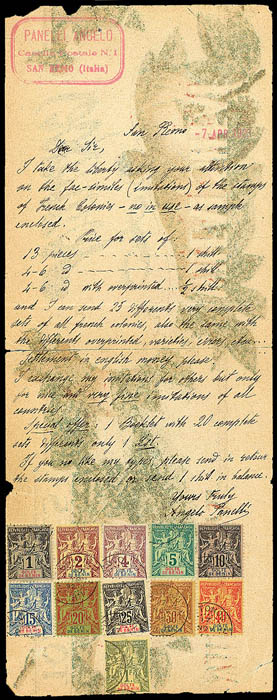 PANELLI ANGELO
Casella Postale N. 1
SAN REMO (Italia)
San Remo
-7 APR
Dear Sir,
I take the liberty asking your attention
on the fac-similes (imitations) of the stamps
of French Colonies - no in use - as sample
enclosed.
Price for sets of:
13 pieces 1 shill.
4-6 id 1 shill.
4-6 id with overprinted 5 shill.
and I can send 25 differents very complete
sets of all french colonies, also the same with
the differents overprinted, varieties, errors,
Settlement in english money, please
I exchange my imitations for others but only
for fine and very fine imitations of all
countries.
Special offer: 1 Booklet with 20 complete
sets differents only 1
If you no like my offers, please send in retour
the stamps enclosed or send 1 shil in balance.
Yours truly
Angelo Panelli
1 2 4 5 10
15 20 25 30 40
1F